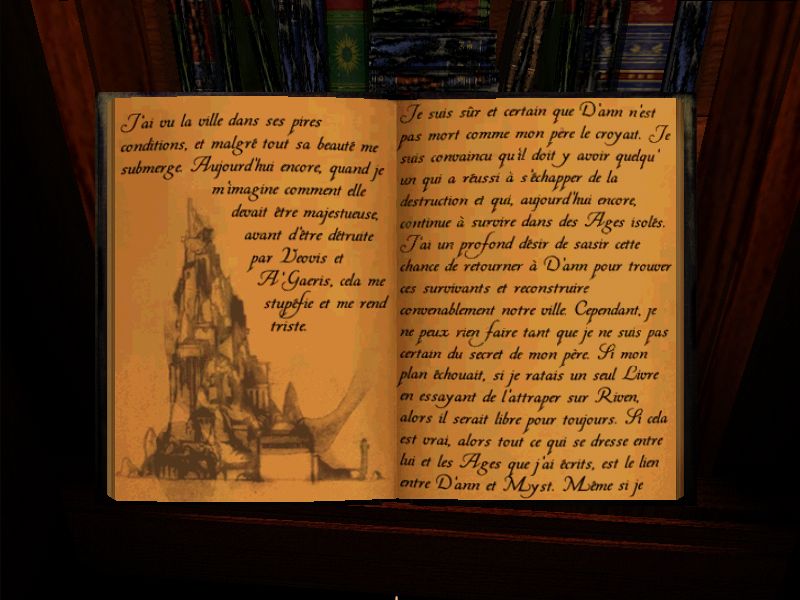 J'ai vu la ville dans ses pires
conditions, et malgré tout sa beauté me
submerge. Aujourd'hui encore, quand je
m'imagine comment elle
devait être majestueuse,
avant d'être détruite
par Veovis et
A'Gaeris, cela me
stupéfie et me rend
triste.
Je suis sûr et certain que D'ann n'est
pas mort comme mon père le croyait. Je
suis convaincu qu'il doit y avoir quelqu'
un qui a réussi à s'échapper de la
destruction et qui, aujourd'hui encore,
continue à survire dans des Ages isolés.
J'ai un profond désir de saisir cette
chance de retourner à D'ann pour trouver
ces survivants et reconstruire
convenablement notre ville. Cependant, je
ne peux rien faire tant que je ne suis pas
certain du secret de mon père. Si mon
plan échouait, si je ratais un seul Livre
en essayant de l'attraper sur Riven,
alors il serait libre pour toujours. Si cela
est vrai, alors tout ce qui se dresse entre
lui et les Ages que j'ai écrits, est le lien
entre D'ann et Myst. Même si je